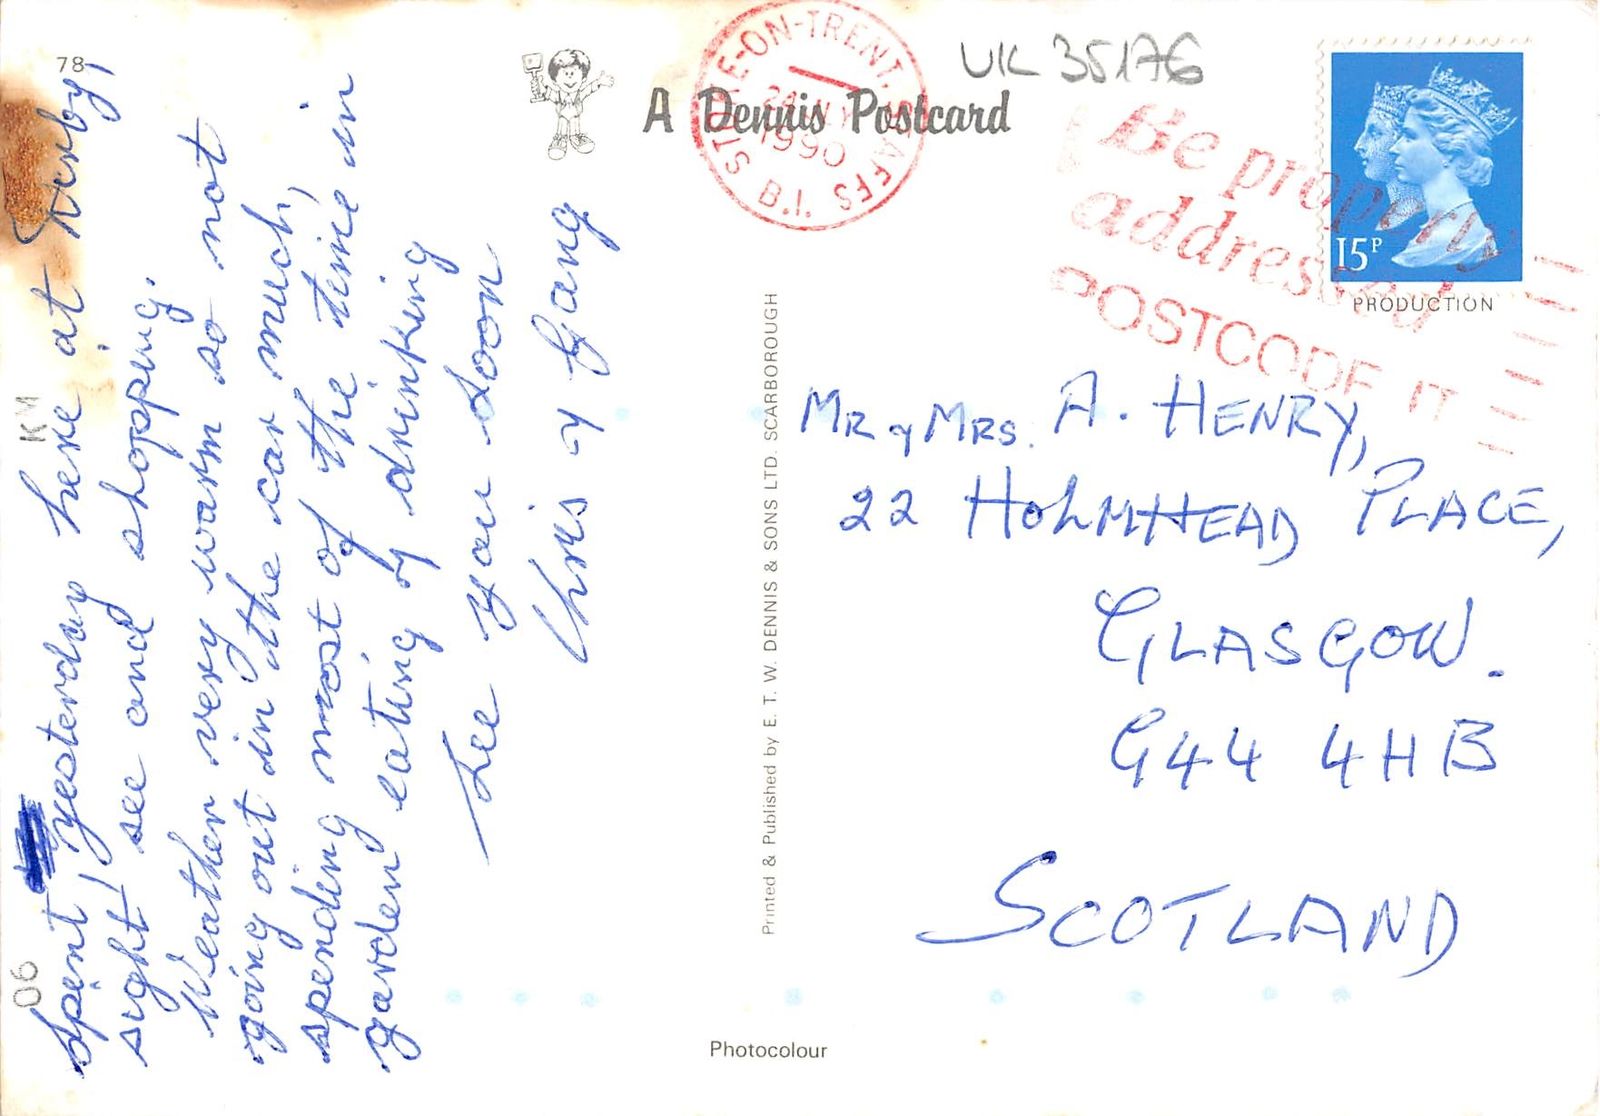 78
Spent yesterday here at Derby,
sight see and shopping.
Weather very warm so not
going out in the car much,
spending most of the time in
garden eating & drinking
See you soon
Chris & Gang
06
KM
A Dennis Postcard
STOKE-ON-TRENT, STAFFS
1990
B.I.
UK 35176
Be properly
addressed
POSTCODE IT
15P
PRODUCTION
Mr & Mrs. A. HENRY,
22 HOLMHEAD PLACE,
GLASGOW.
G44 4HB
SCOTLAND
Printed & Published by E. T. W. DENNIS & SONS LTD. SCARBOROUGH
Photocolour